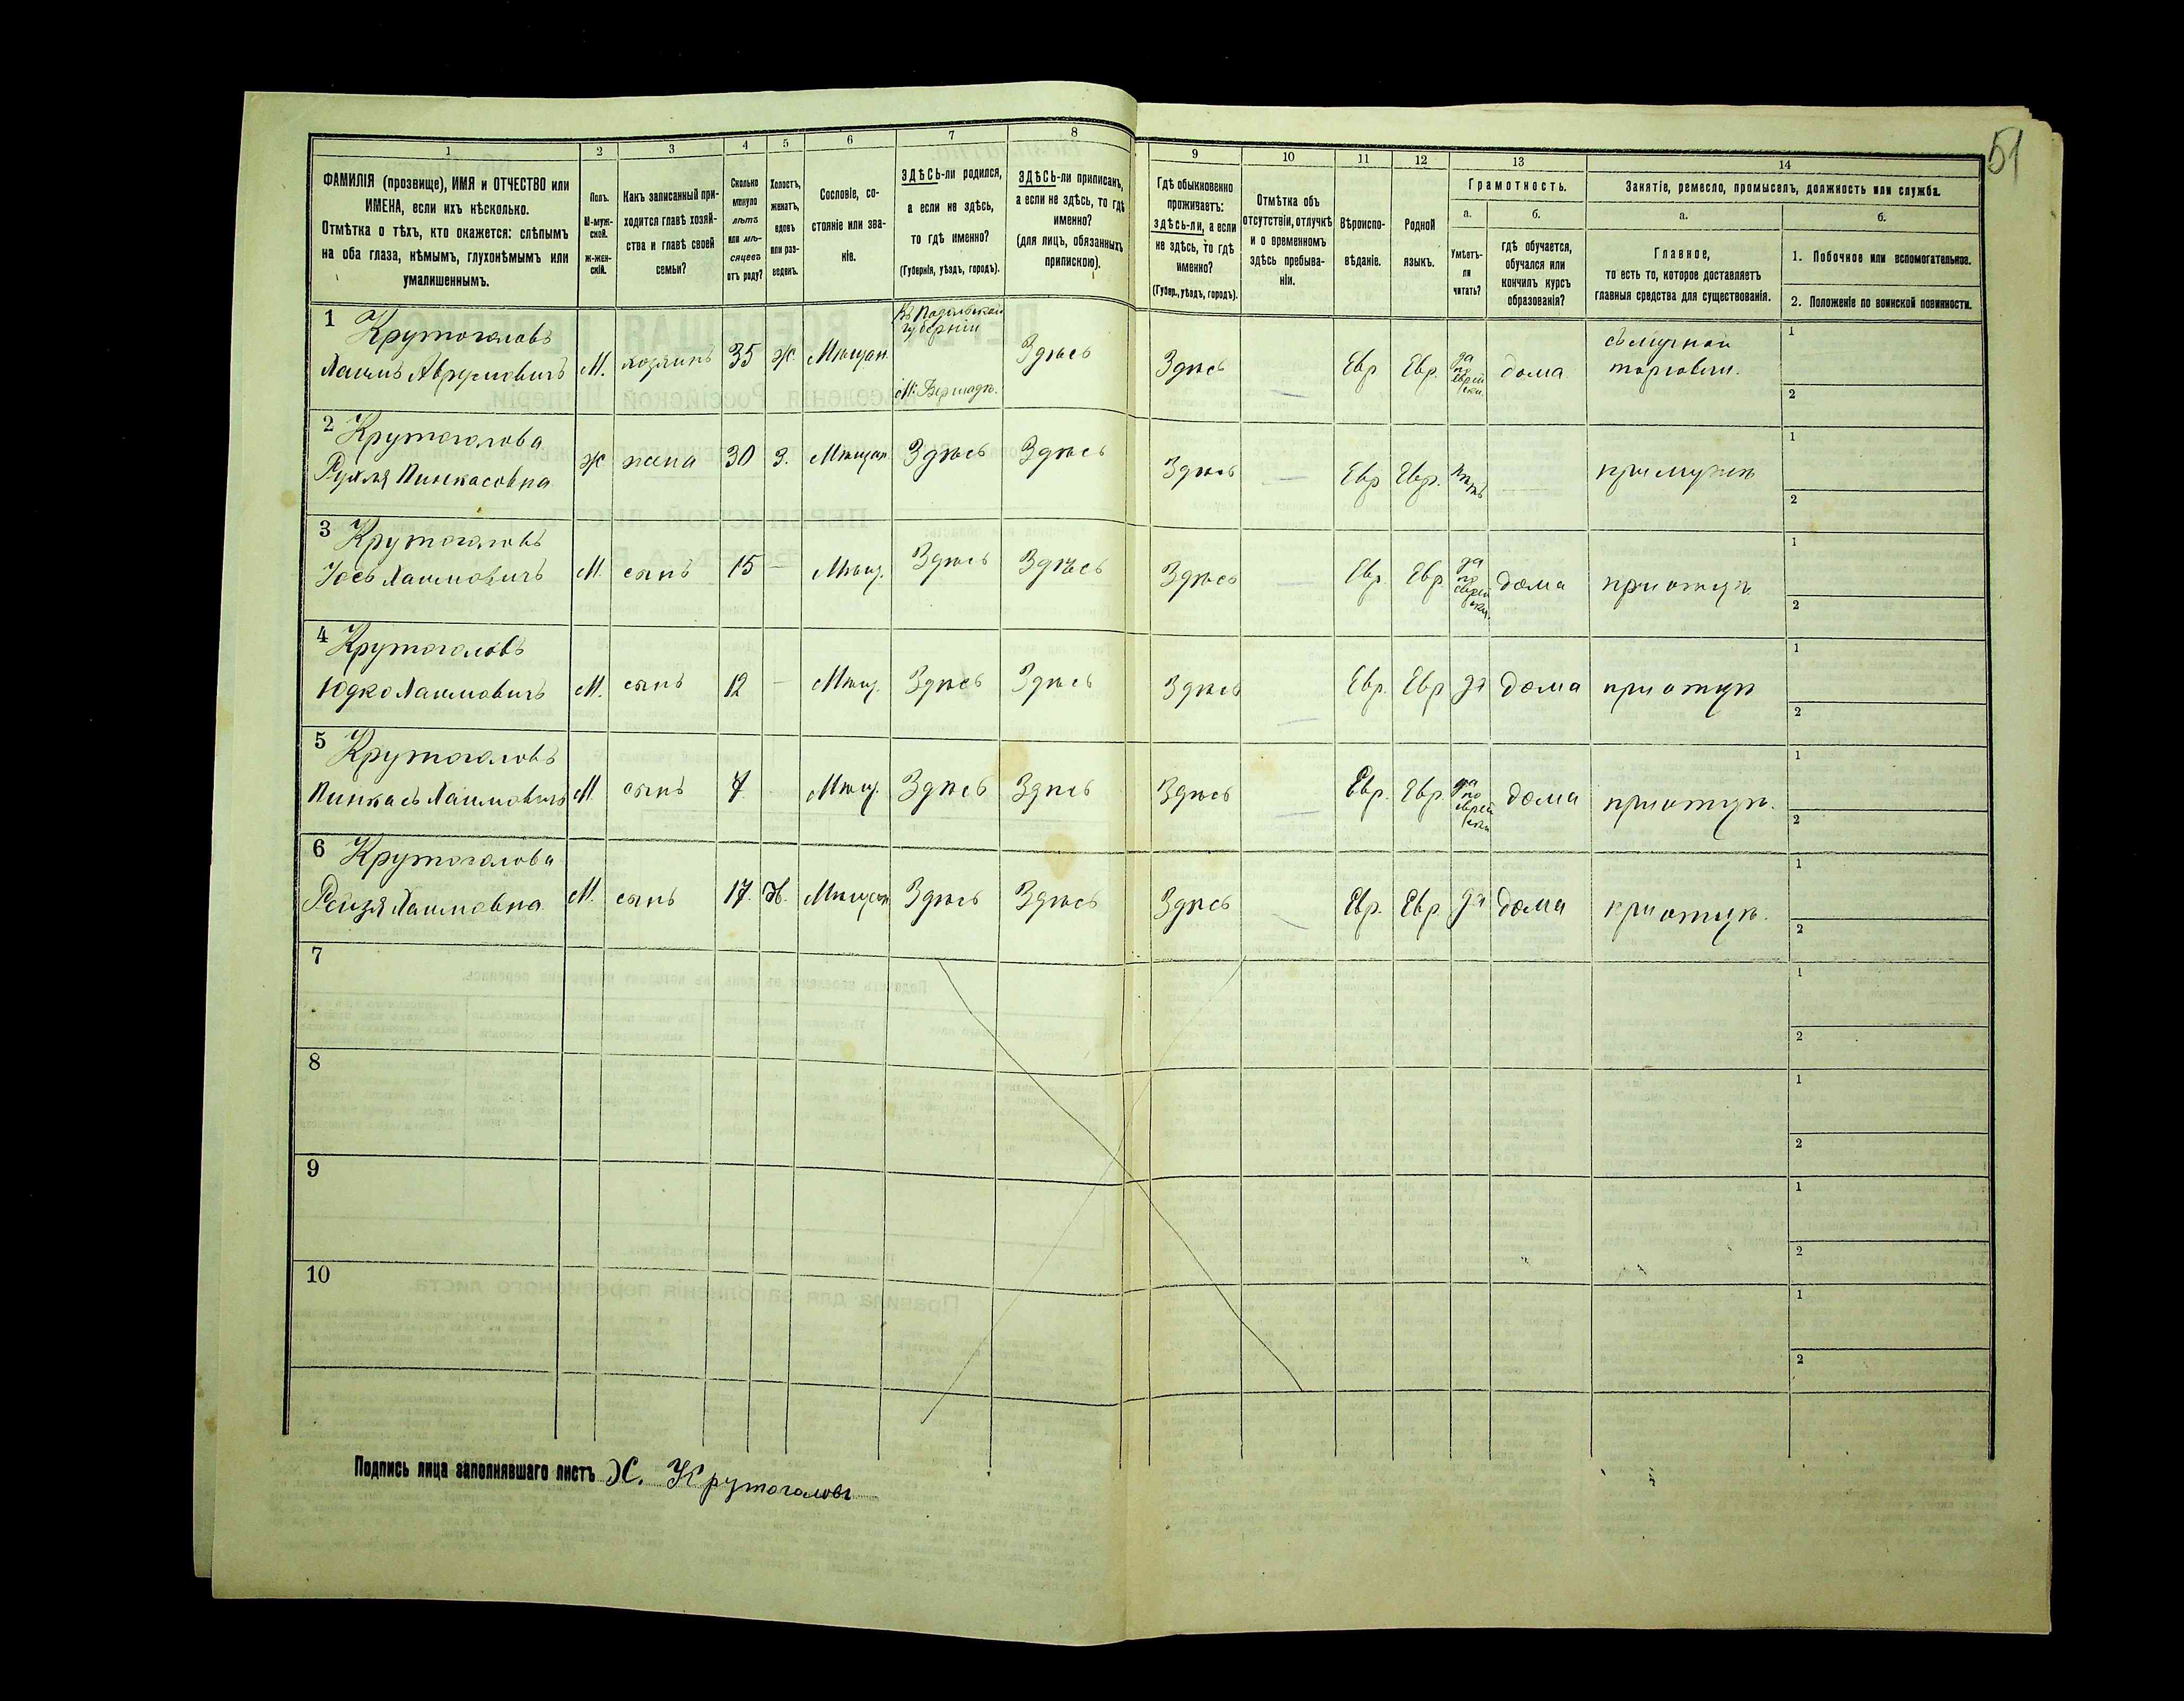 51
1
2
3
4
5
6
7
8
9
10
11
12
13
14
ФАМИЛІЯ (прозвище), ИМЯ и ОТЧЕСТВО или
ИМЕНА, если ихъ нѣсколько.
Отмѣтка о тѣхъ, кто окажется: слѣпымъ
на оба глаза, нѣмымъ, глухонѣмымъ или
умалишеннымъ.
Полъ.
М-муж-
ской.
Ж-жен-
скій.
Какъ записанный при-
ходится главѣ хозяй-
ства и главѣ своей
семьи?
Сколько
минуло
лѣтъ
или мѣ-
сяцевъ
отъ роду?
Холостъ,
женатъ,
вдовъ
или раз-
веденъ.
Сословіе, со-
стояніе или зва-
ніе.
ЗДѢСЬ-ли родился,
а если не здѣсь,
то гдѣ именно?
(Губернія, уѣздъ, городъ).
ЗДѢСЬ-ли приписанъ,
а если не здѣсь, то гдѣ
именно?
(для лицъ, обязанныхъ
припискою).
Гдѣ обыкновенно
проживаетъ:
здѣсь-ли, а если
не здѣсь, то гдѣ
именно?
(Губер., уѣздъ, городъ).
Отмѣтка объ
отсутствіи, отлучкѣ
и о временномъ
здѣсь пребыва-
ніи.
Вѣроиспо-
вѣданіе.
Родной
языкъ.
Грамотность.
а.
б.
Умѣетъ-
ли
читать?
гдѣ обучается,
обучался или
кончилъ курсъ
образованія?
Занятіе, ремесло, промыселъ, должность или служба.
а.
б.
Главное,
то есть то, которое доставляетъ
главныя средства для существованія.
1. Побочное или вспомогательное.
2. Положеніе по воинской повинности.
1 Крутоголовъ
Хаимъ Аврумовичъ
М.
хозяинъ
35
ж.
Мѣщан.
Въ Подольской
губерніи
М. Бершадь.
Здѣсь
Здѣсь
Евр
Евр.
да
по
еврей
ски.
дома
торговли.
1
2
2 Крутоголова
Рухля Пинкасовна
ж
жена
30
З.
Мѣщан
Здѣсь
Здѣсь
Здѣсь
—
Евр
Евр.
нѣтъ
—
при мужѣ
1
2
3 Крутоголовъ
Іось Хаимовичъ
М.
сынъ
15
—
Мѣщ.
Здѣсь
Здѣсь
Здѣсь
—
Евр.
Евр.
да
по
еврей
ски.
дома
при отцѣ
1
2
4 Крутоголовъ
Юдко Хаимовичъ
М.
сынъ
12
—
Мѣщ.
Здѣсь
Здѣсь
Здѣсь
—
Евр.
Евр
да
дома
при отцѣ
1
2
5 Крутоголовъ
Пинкасъ Хаимовичъ
М.
сынъ
7
Мѣщ.
Здѣсь
Здѣсь
Здѣсь
—
Евр.
Евр.
да
по
еврей
ски
дома
при отцѣ.
1
2
6 Крутоголова
Рейзя Хаимовна
М.
сынъ
17.
Мѣщан
Здѣсь
Здѣсь
Здѣсь
—
Евр.
Евр.
да
дома
при отцѣ.
1
2
7
1
2
8
1
2
9
1
2
10
1
2
Подпись лица заполнявшаго листъ Х. Крутоголовъ